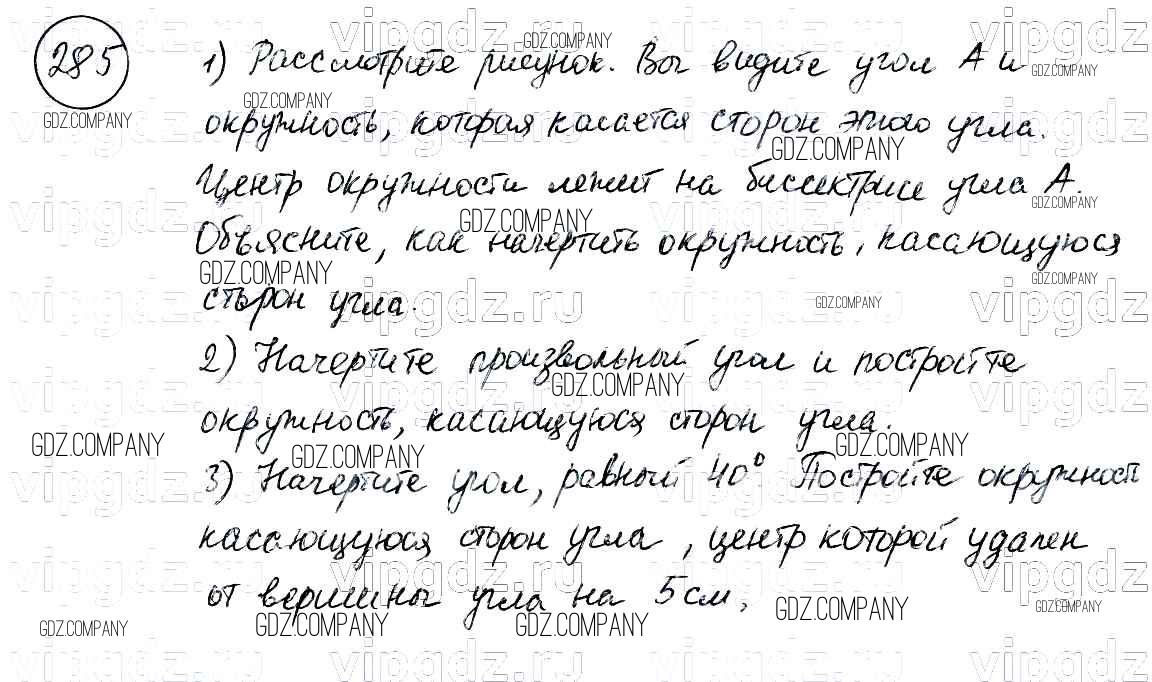 285
1) Рассмотрите рисунок. Вы видите угол А и
окружность, которая касается сторон этого угла.
Центр окружности лежит на биссектрисе угла А.
Объясните, как начертить окружность, касающуюся
сторон угла.
2) Начертите произвольный угол и постройте
окружность, касающуюся сторон угла.
3) Начертите угол, равный 40° Постройте окружность
касающуюся сторон угла, центр которой удален
от вершины угла на 5 см,
GDZ.COMPANY
vipgdz.ru